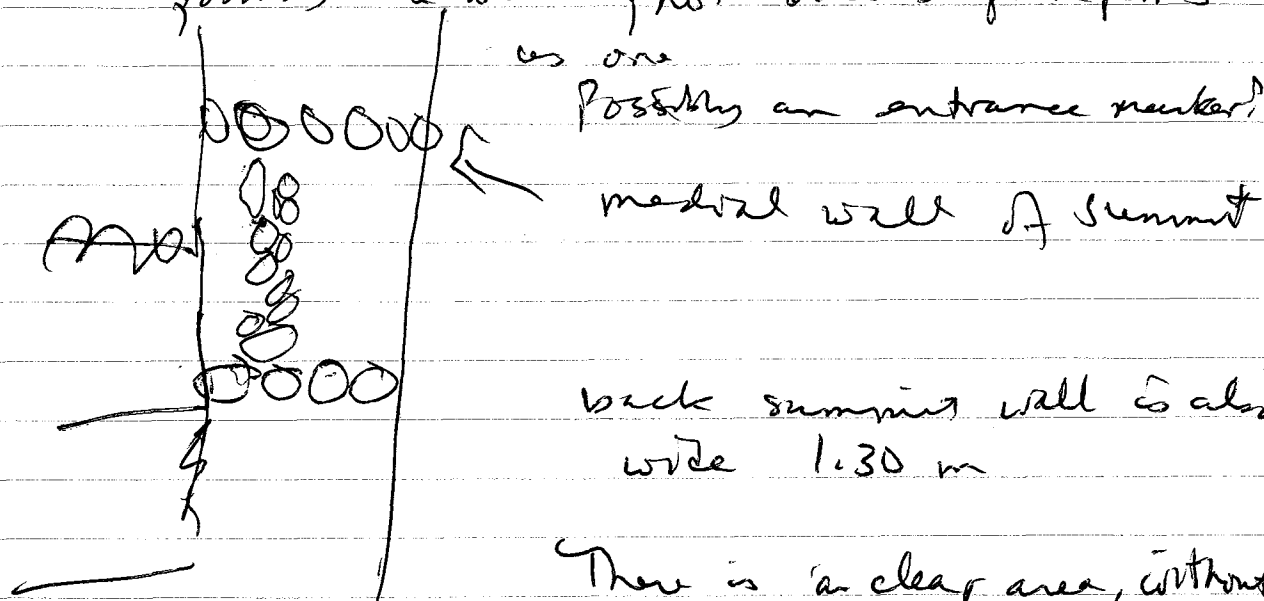 as one
Possibly an entrance marker?
medial wall of summit
back summit wall is also
wide 1.30 m
There is a clear area, without